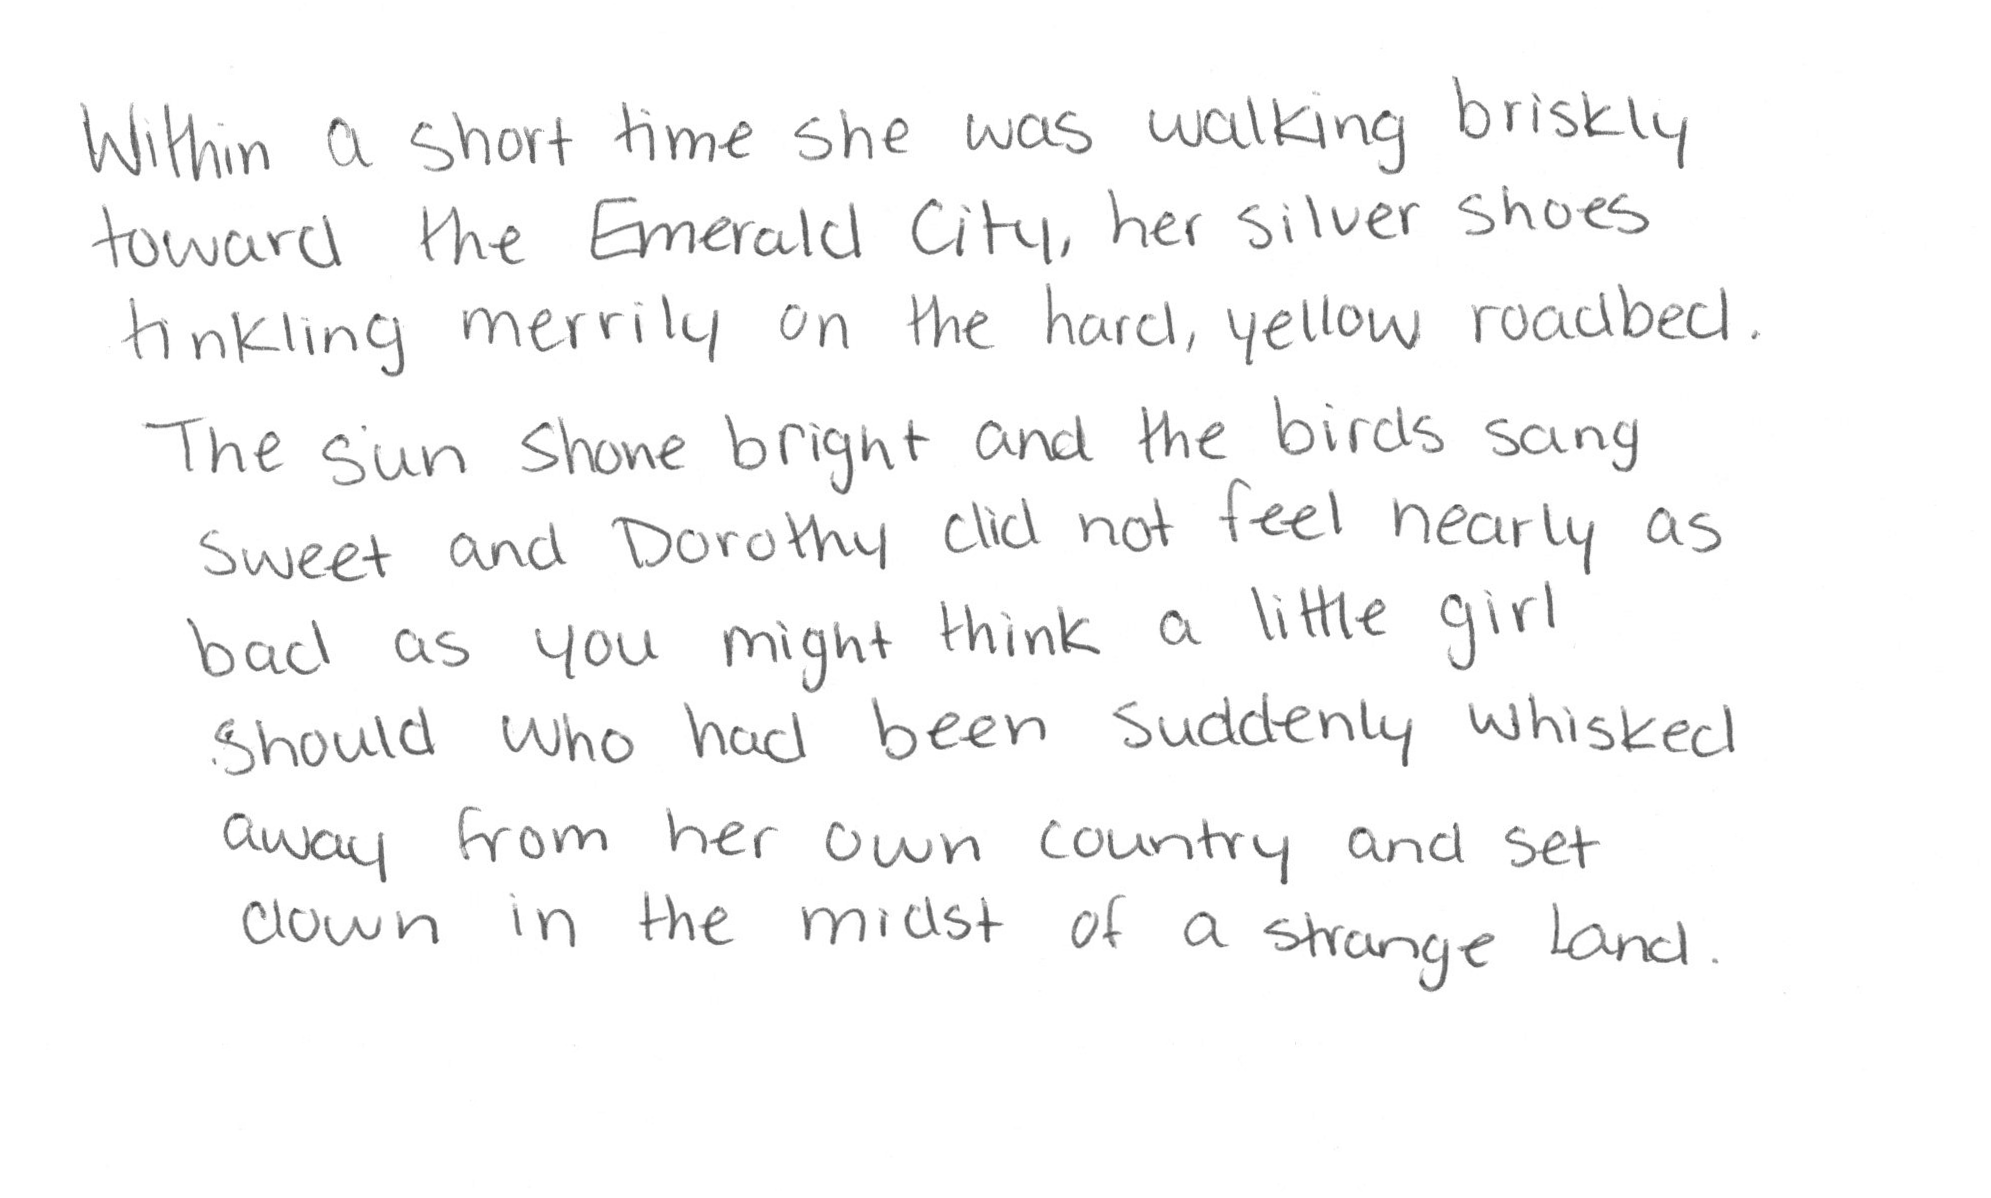 Within a short time she was walking briskly
toward the Emerald City, her silver shoes
tinkling merrily on the hard, yellow roadbed.
The sun shone bright and the birds sang
sweet and Dorothy did not feel nearly as
bad as you might think a little girl
should who had been suddenly whisked
away from her own country and set
down in the midst of a strange land.